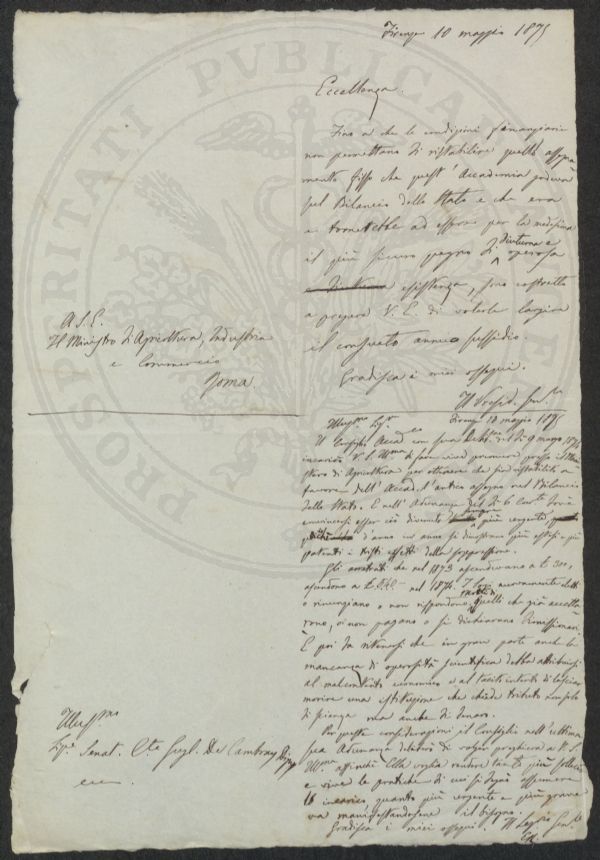 Firenze 10 maggio 1875
Eccellenza.
Fino a che le condizioni finanziarie
non permettano di ristabilire quello assegna
mento fisso che quest' Accademia godeva
sul Bilancio dello Stato e che era
e tornerebbe ad essere per la medesima
il più sicuro pegno di diuturna e operosa
esistenza, sono costretto
a pregare V. E. di volerle largire
il consueto annuo sussidio.
Gradisca i miei ossequi.
Il Presid.
A S. E.
Il Ministro di Agricoltura, Industria
e Commercio
Roma.
Firenze 10 maggio
Il Consiglio Accad. con sua del 9 marzo
incaricò V. S. Ill.ma di fare vive premure presso il Mini
stero di Agricoltura per ottenere che sia ristabilito a
favore dell' Accad. l'antico assegno nel Bilancio
dello Stato. E nell' Adunanza del dì 6 Corr.te
convincersi esser ciò divenuto sempre più urgente,
d'anno in anno si dimostrano più estesi e più
patenti i tristi effetti della soppressione.
Gli arretrati che nel 1873 ascendevano a £ 300,
ascendono a nel 1874. I nuovamente eletti
o rinunziano o non rispondono, quelli che già accetta
rono, o non pagano o si dichiarano Dimissionari.
È poi da ritenersi che in gran parte anche la
mancanza di operosità scientifica debba attribuirsi
al malcontento economico e al tacito intento di lasciar
morire una istituzione che chiede tributo non solo
di scienza ma anche di denaro.
Per queste considerazioni il Consiglio nell' ultima
sua Adunanza deliberò di volger preghiera a V. S.
Ill.ma affinchè Ella voglia rendere tanto più sollecite
e vive le pratiche di cui si degnò assumere
l' incarico quanto più urgente e più grave
va manifestandosene il bisogno.
Gradisca i miei ossequi. Il Segr.io Gen.le
Illmo
Sigr. Senat. Cte Gugl. De Cambray Digny
ec.
PROSPERITATI PVBLICAE